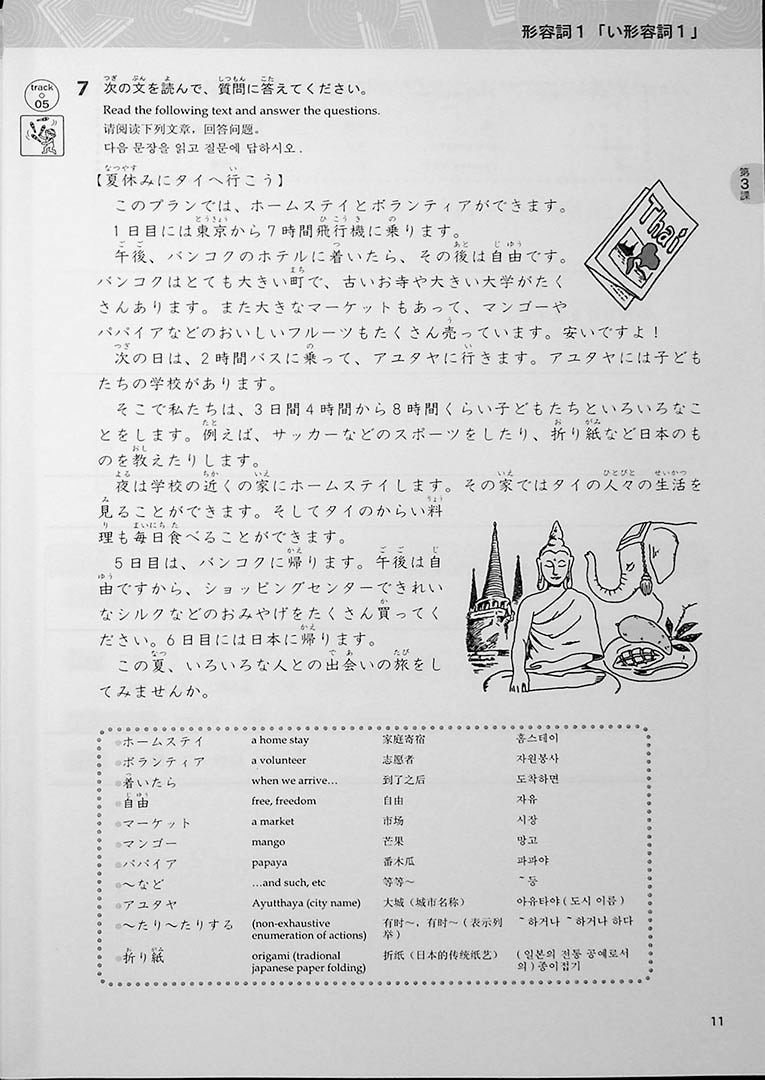 形容詞1「い形容詞1」
track
05
7 次の文を読んで、質問に答えてください。
Read the following text and answer the questions.
请阅读下列文章，回答问题。
다음 문장을 읽고 질문에 답하시오.
第3課
【夏休みにタイへ行こう】
このプランでは、ホームステイとボランティアができます。
1日目には東京から7時間飛行機に乗ります。
午後、バンコクのホテルに着いたら、その後は自由です。
バンコクはとても大きい町で、古いお寺や大きい大学がたく
さんあります。また大きなマーケットもあって、マンゴーや
パパイアなどのおいしいフルーツもたくさん売っています。安いですよ！
次の日は、2時間バスに乗って、アユタヤに行きます。アユタヤには子ども
たちの学校があります。
そこで私たちは、3日間4時間から8時間くらい子どもたちといろいろなこ
とをします。例えば、サッカーなどのスポーツをしたり、折り紙など日本のも
のを教えたりします。
夜は学校の近くの家にホームステイします。その家ではタイの人々の生活を
見ることができます。そしてタイのからい料
理も毎日食べることができます。
5日目は、バンコクに帰ります。午後は自
由ですから、ショッピングセンターできれい
なシルクなどのおみやげをたくさん買ってく
ださい。6日目には日本に帰ります。
この夏、いろいろな人との出会いの旅をし
てみませんか。
Thai
ホームステイ a home stay 家庭寄宿 홈스테이
ボランティア a volunteer 志愿者 자원봉사
着いたら when we arrive… 到了之后 도착하면
自由 free, freedom 自由 자유
マーケット a market 市场 시장
マンゴー mango 芒果 망고
パパイア papaya 番木瓜 파파야
～など …and such, etc 等等～ ~등
アユタヤ Ayutthaya (city name) 大城（城市名称） 아유타야(도시 이름)
～たり～たりする (non-exhaustive enumeration of actions) 有时～，有时～（表示列举） ~하거나 ~하거나 하다
折り紙 origami (tradional japanese paper folding) 折纸（日本的传统纸艺） (일본의 전통 공예로서의)종이접기
11